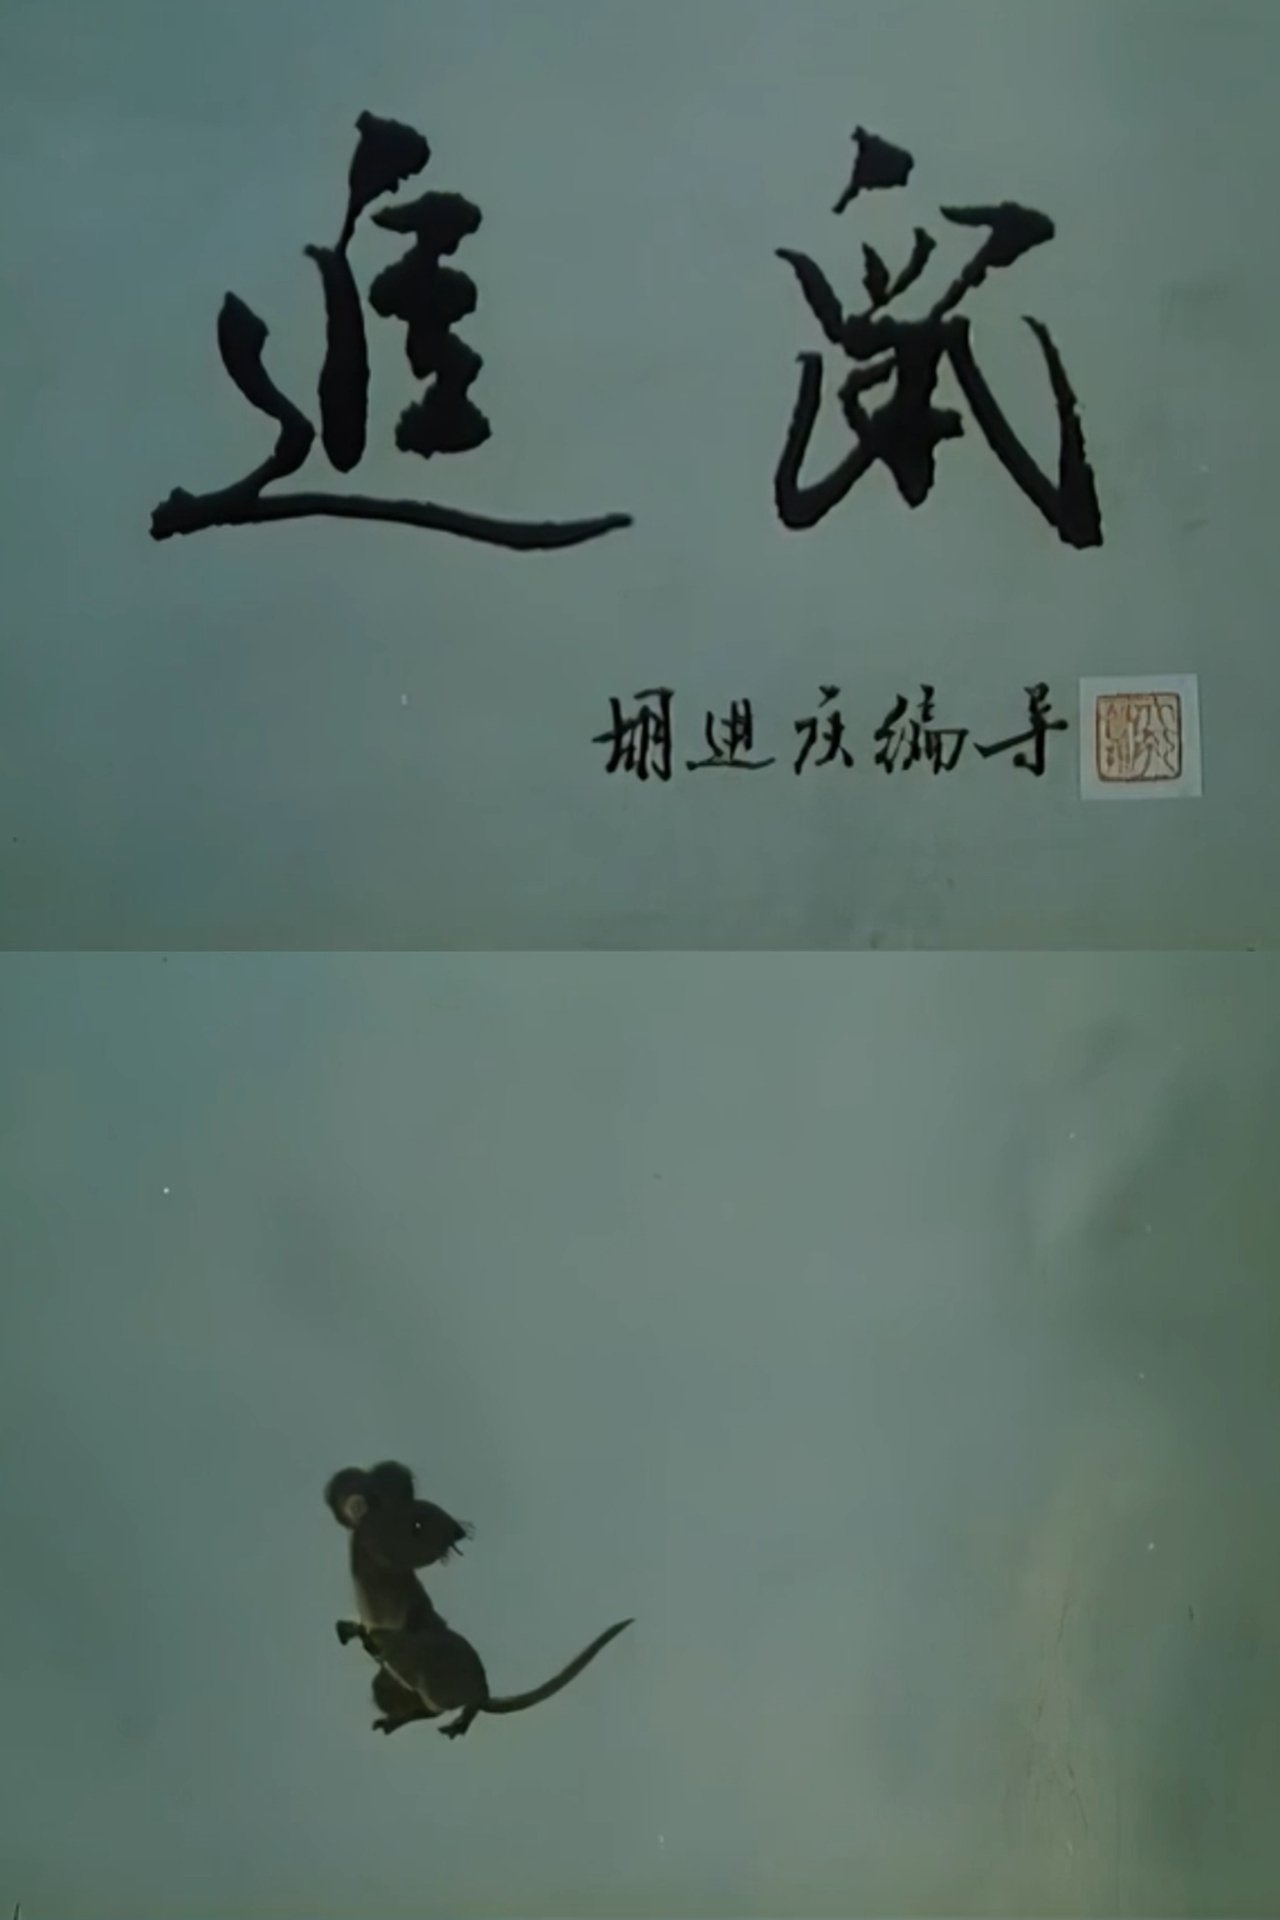 進鼠
胡进庆编导